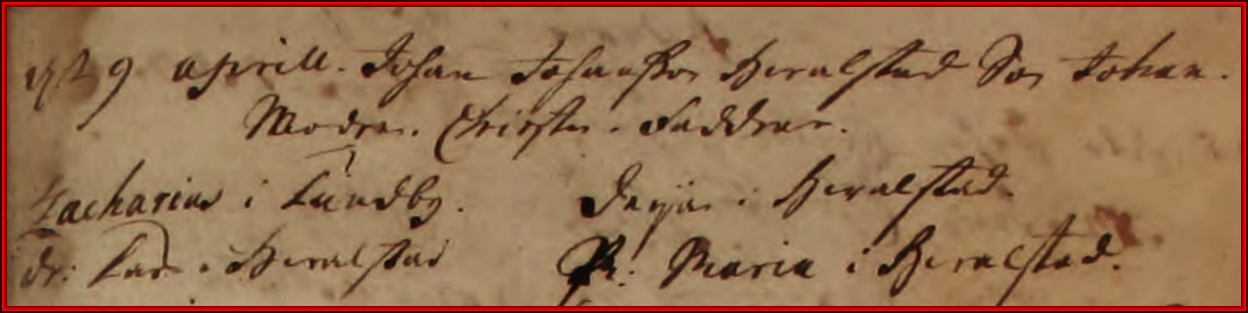 1729 aprill. Johan Johansson Heralstad Son Johan.
Modren. Christin. Faddrar.
Zacharias i Lundby. i Heralstad.
dr: Lars i Heralstad P. Maria i Heralstad.